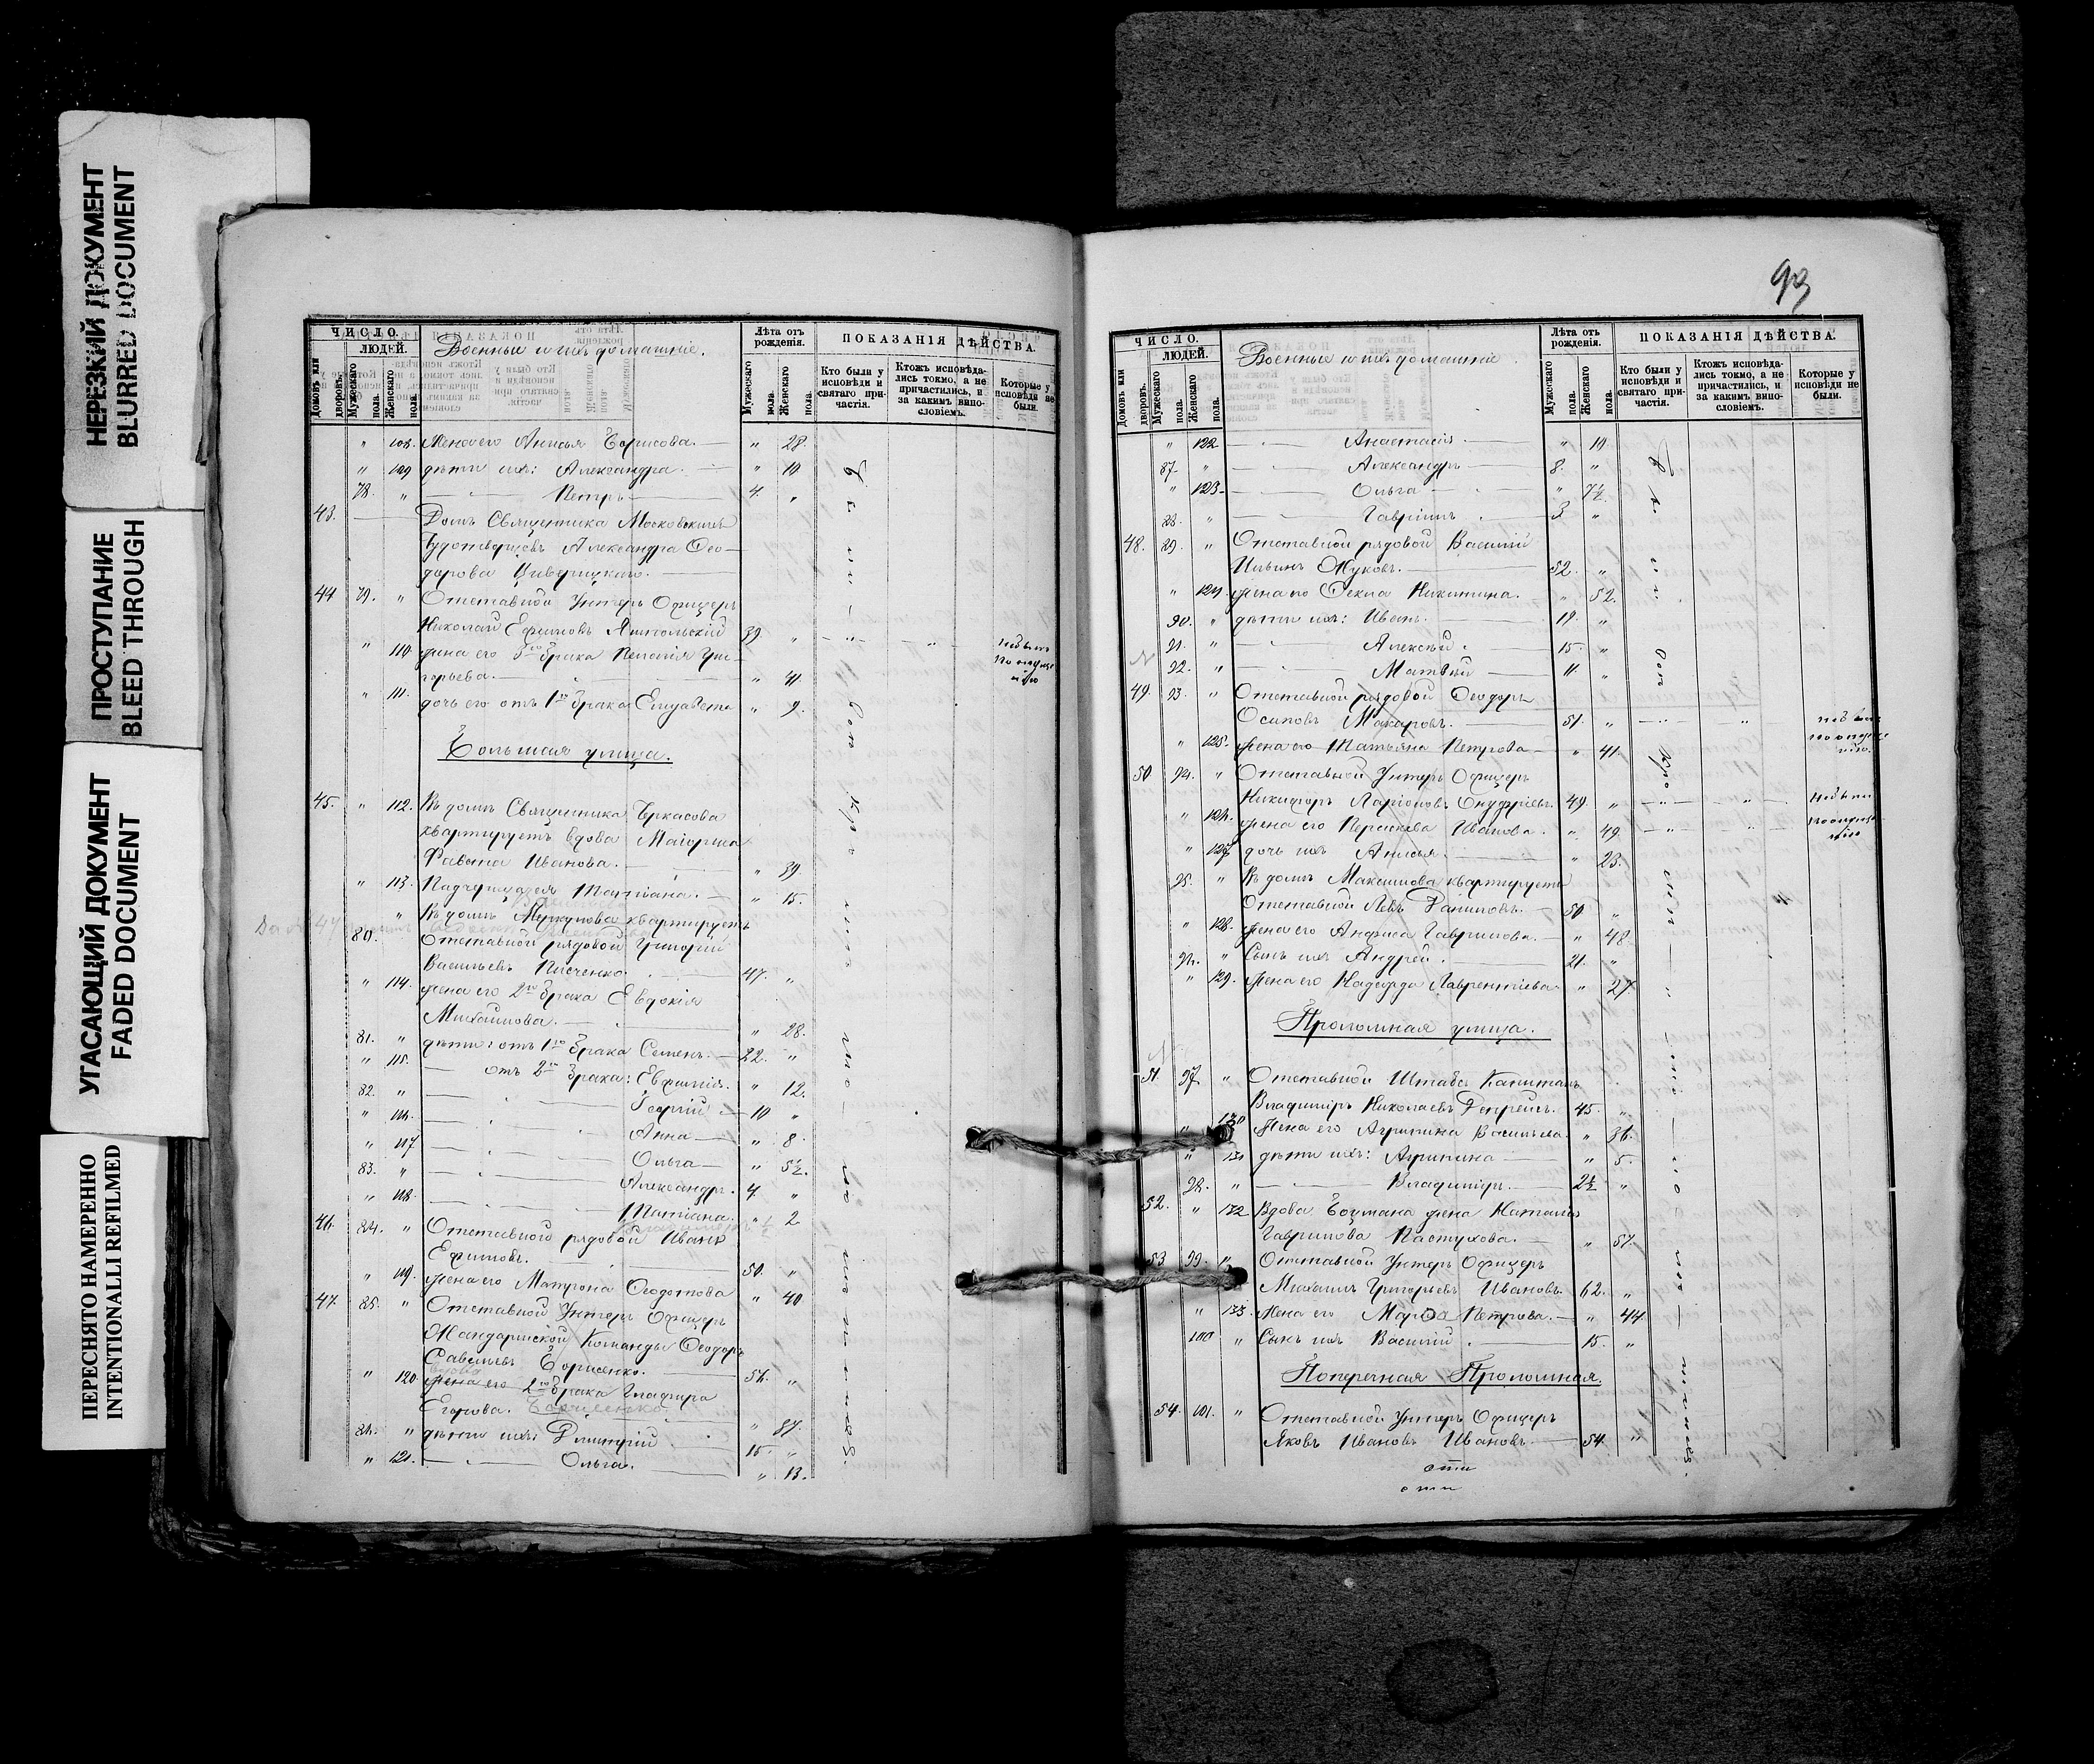 НЕРЕЗКИЙ ДОКУМЕНТ
BLURRED DOCUMENT
ПРОСТУПАНИЕ
BLEED THROUGH
УГАСАЮЩИЙ ДОКУМЕНТ
FADED DOCUMENT
ПЕРЕСНЯТО НАМЕРЕННО
INTENTIONALLI REFILMED
ЧИСЛО.
ЛЮДЕЙ.
Домовъ или дворовъ.
Мужескаго пола.
Женскаго пола.
Военные и ихъ домашніе.
Лѣта отъ рожденія.
Мужескаго пола.
Женскаго пола.
ПОКАЗАНІЯ ДѢЙСТВА.
Кто были у исповѣди и святаго причастія.
Ктожъ исповѣдались токмо, а не причастились, и за какимъ винословіемъ.
Которые у исповѣди не были.
" 108. Жена его Анисья Борисова. " 28.
" 109 дѣти ихъ: Александра. " 10
78. " Петръ 4. "
43. Домъ Священника Московскихъ
Чудотворцевъ Александра Ѳео-
дорова
44 79. " Отставной Унтеръ Офицеръ
Николай Ефимовъ 39. "
" 110. жена его 3го брака Пелагія Гри-
горьева. " 41.
" 111. дочь его отъ 1го брака Елизавета " 9.
Большая улица.
45. " 112. Въ домѣ Священника Черкасова
квартируетъ вдова Маіорша
Иванова. " 39.
" 113. Падчерица ея Татіана. " 15.
Въ домѣ квартируетъ
80. " Отставной рядовой Григорій
Васильевъ 47. "
" 114. жена его 2го брака Евдокія
Михайлова. " 28.
81. " дѣти: отъ 1го брака Семенъ. 22. "
" 115. отъ 2го брака: Евфимія. " 12.
82. " Георгій 10 "
" 116. Анна " 8.
" 117 Ольга " 5½.
83. " Александръ. 4. "
" 118. Татіана. " 2
46. 84. " Отставной рядовой Иванъ
Ефимовъ. 50. "
" 119. жена его Матрона Ѳедотова " 40
47. 85. " Отставной Унтеръ Офицеръ
Жандармской Команды Ѳеодоръ
Савельевъ Борисенко. 56. "
" 120 жена его 2го брака Глафира
Егорова. Борисенко " 37.
86. " дѣти ихъ: Димитрій 15. "
" 121. Ольга. " 13.
93
ЧИСЛО.
ЛЮДЕЙ.
Домовъ или дворовъ.
Мужескаго пола.
Женскаго пола.
Военные и ихъ домашніе.
Лѣта отъ рожденія.
Мужескаго пола.
Женскаго пола.
ПОКАЗАНІЯ ДѢЙСТВА.
Кто были у исповѣди и святаго причастія.
Ктожъ исповѣдались токмо, а не причастились, и за какимъ винословіемъ.
Которые у исповѣди не были.
" 122 Анастасія " 10
87. " Александръ 8. "
" 123. Ольга " 7½
88. " Гавріилъ 3 "
48. 89. " Отставной рядовой Василій
Ильинъ Жуковъ. 52. "
" 124 жена его Ѳекла Никитина. " 52.
90. " дѣти ихъ: Иванъ. 19. "
91. " Алексѣй. 15. "
92. " Матвѣй 11. "
49. 93. " Отставной рядовой Ѳеодоръ
Осиповъ Макаровъ. 51. "
" 125. жена его Татьяна Петрова " 41.
50 94. " Отставной Унтеръ Офицеръ
Никифоръ Ларіоновъ Онуфріевъ. 49. "
" 126. жена его Параскева Иванова. " 49.
" 127. дочь ихъ Анисья. " 23.
95. " Въ домѣ Максимова квартируетъ
Отставной Левъ Даниловъ. 50 "
" 128. жена его Анфиса Гаврилова. " 48
96. " Сынъ ихъ Андрей. 21. "
" 129. жена его Надежда Лаврентіева " 27
Проломная улица.
51. 97. " Отставной Штабсъ Капитанъ
Владиміръ Николаевъ 45. "
" 130 Жена его Агрипина Васильева. " 36.
" 131 дѣти ихъ: Агрипина " 5.
98. " Владиміръ. 2½ "
52. " 132 Вдова Боцмана жена Наталія
Гаврилова Пастухова. " 57.
53 99. " Отставной Унтеръ Офицеръ
Михаилъ Григорьевъ Ивановъ. 62. "
" 133. Жена его Марѳа Петрова. " 44
100 " Сынъ ихъ Василій. 15. "
Поперечная Проломная.
54. 101. " Отставной Унтеръ Офицеръ
Яковъ Ивановъ Ивановъ. 54. "